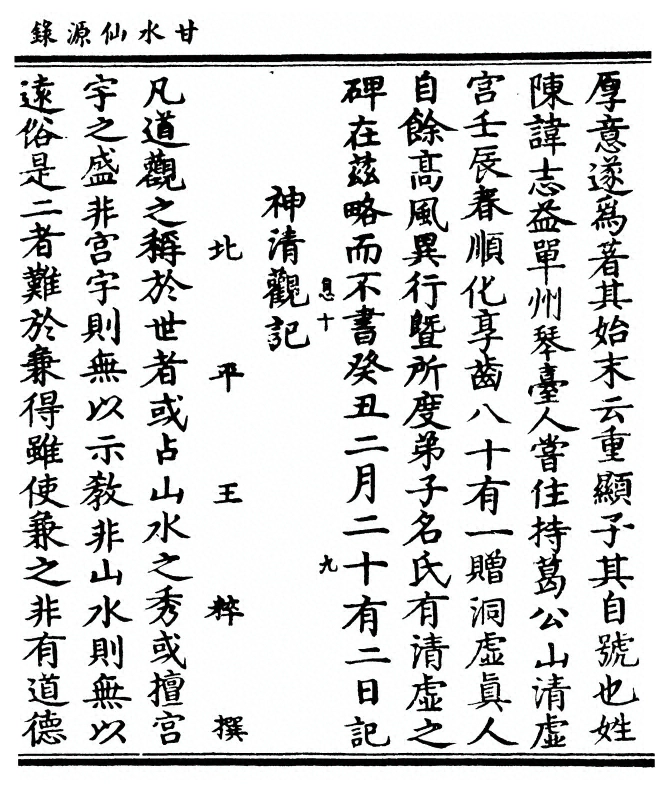 甘水仙源錄
厚意遂爲著其始末云重顯子其自號也姓
陳諱志益單州琴臺人嘗住持葛公山清虛
宮壬辰春順化享齒八十有一贈洞虛眞人
自餘高風異行曁所度弟子名氏有清虛之
碑在茲略而不書癸丑二月二十有二日記
息十
九
神清觀記
北平王粹撰
凡道觀之稱於世者或占山水之秀或擅宮
宇之盛非宮宇則無以示教非山水則無以
遠俗是二者難於兼得雖使兼之非有道德